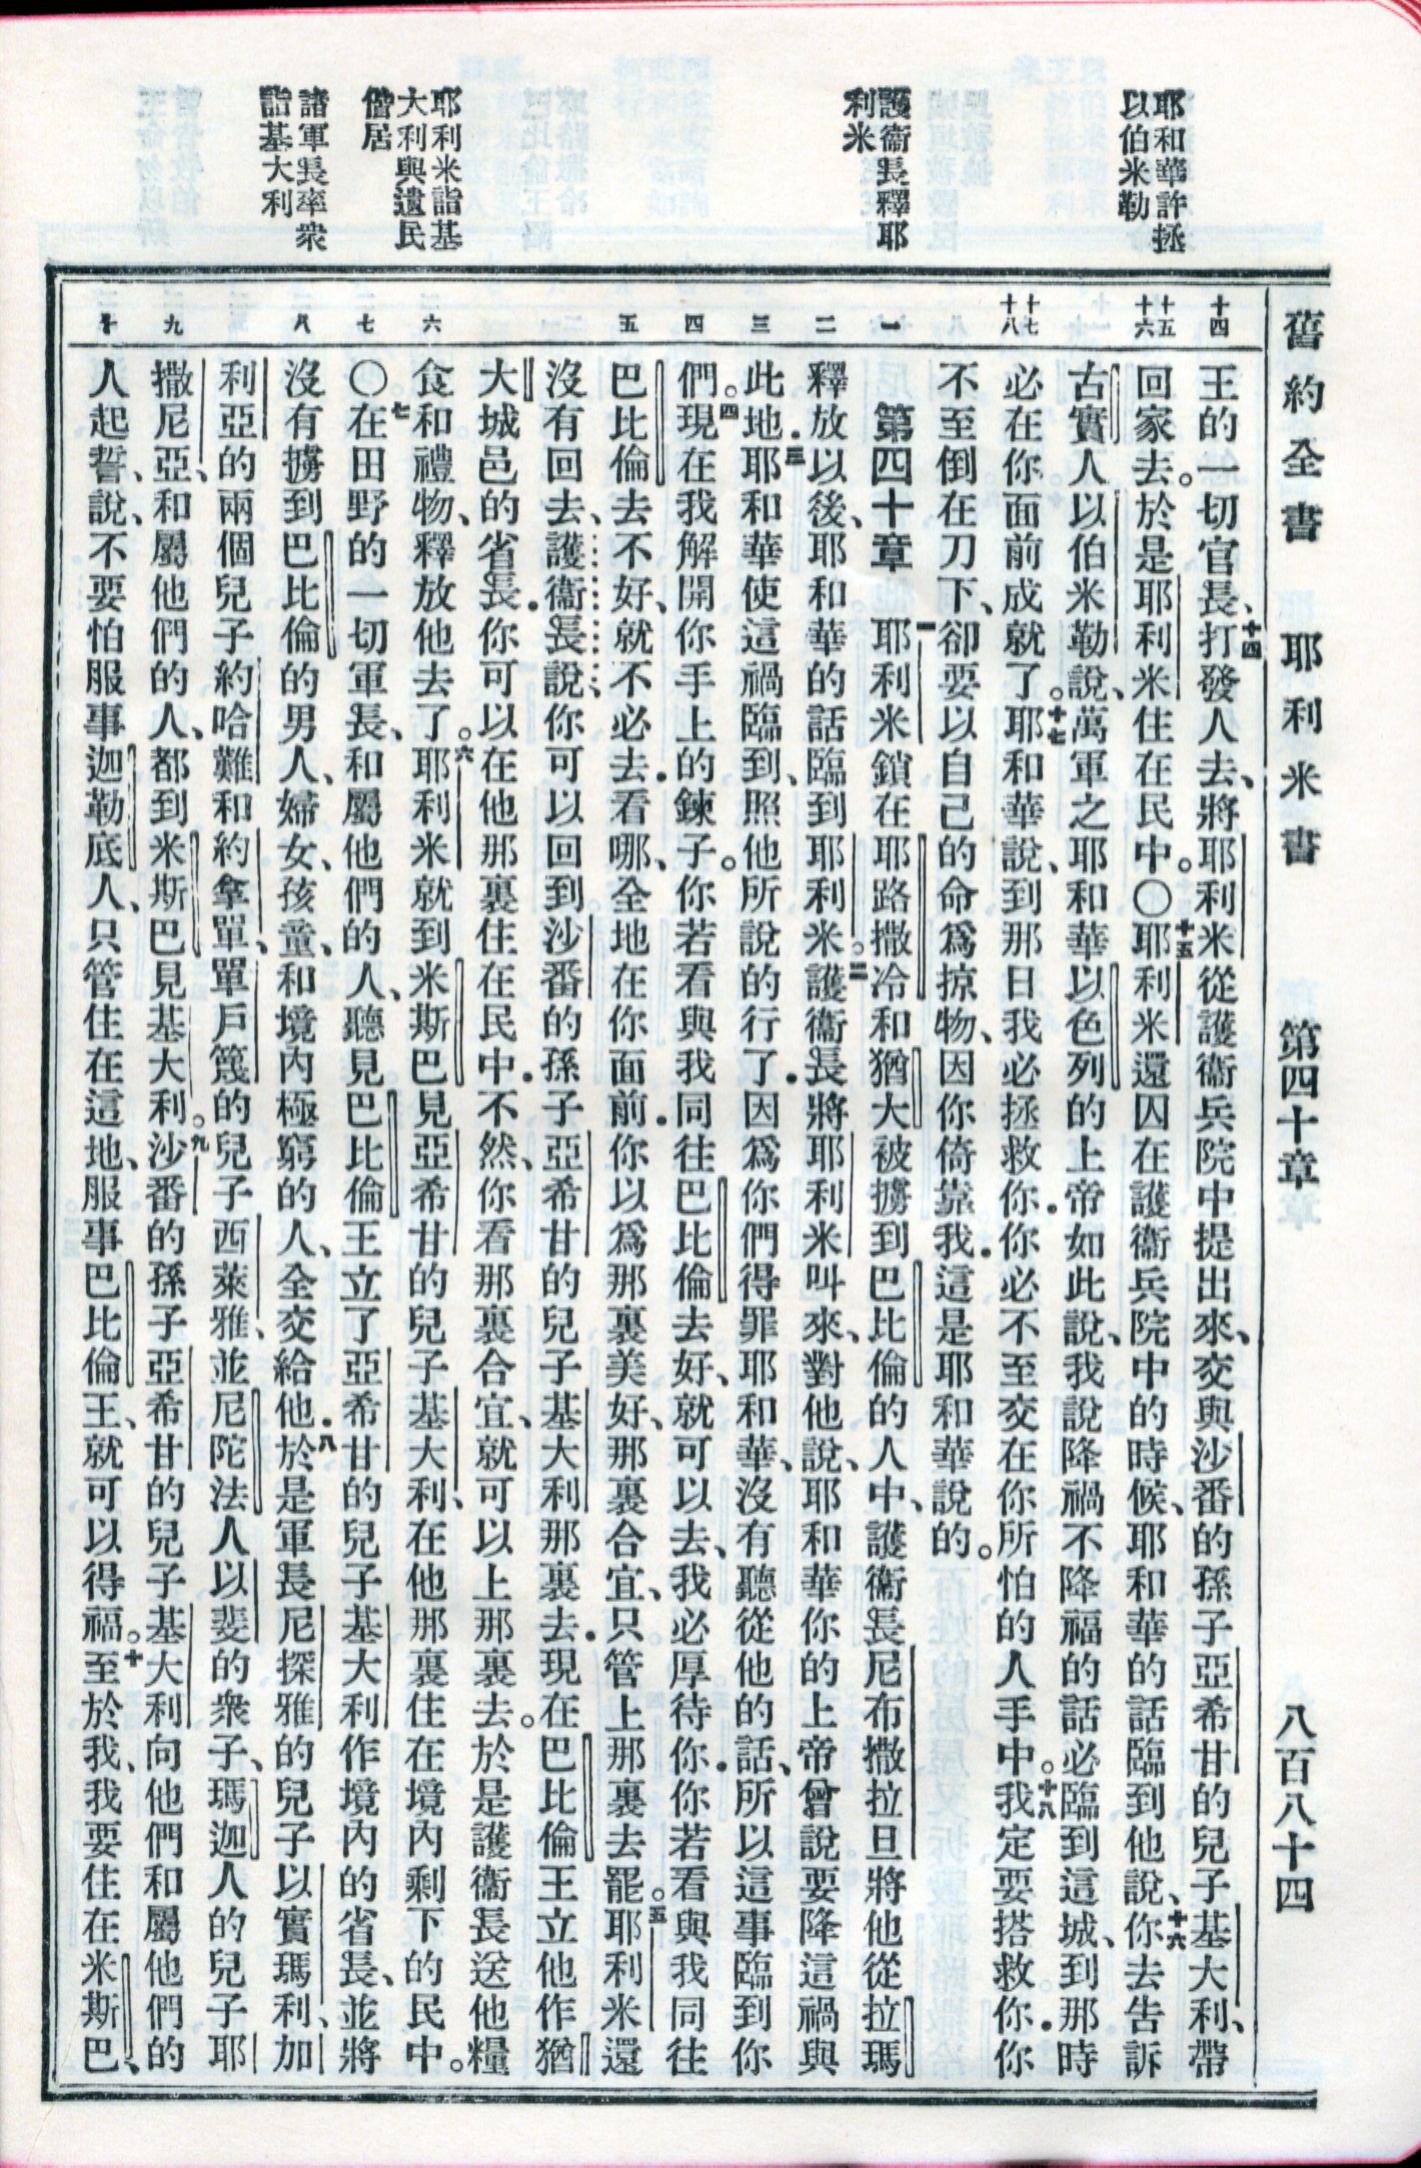 舊約全書 耶利米書 第四十章 八百八十四
耶和華許拯
以伯米勒
護衞長釋耶
利米
耶利米詣基
大利與遺民
偕居
諸軍長率衆
詣基大利
十四
十五
十六
十七
十八
一
二
三
四
五
六
七
八
九
十
王的一切官長、十四打發人去、將耶利米從護衞兵院中提出來、交與沙番的孫子亞希甘的兒子基大利、帶
回家去。於是耶利米住在民中。〇十五耶利米還囚在護衞兵院中的時候、耶和華的話臨到他說、十六你去告訴
古實人以伯米勒說、萬軍之耶和華以色列的上帝如此說、我說降禍不降福的話必臨到這城、到那時
必在你面前成就了。十七耶和華說、到那日我必拯救你．你必不至交在你所怕的人手中。十八我定要搭救你．你
不至倒在刀下、卻要以自己的命爲掠物、因你倚靠我．這是耶和華說的。
第四十章 一耶利米鎖在耶路撒冷和猶大被擄到巴比倫的人中、護衞長尼布撒拉旦將他從拉瑪
釋放以後、耶和華的話臨到耶利米。二護衞長將耶利米叫來、對他說、耶和華你的上帝曾說要降這禍與
此地．三耶和華使這禍臨到、照他所說的行了．因爲你們得罪耶和華、沒有聽從他的話、所以這事臨到你
們。四現在我解開你手上的鍊子。你若看與我同往巴比倫去好、就可以去、我必厚待你．你若看與我同往
巴比倫去不好、就不必去．看哪、全地在你面前．你以爲那裏美好、那裏合宜、只管上那裏去罷。五耶利米還
沒有回去、護衞長說、你可以回到沙番的孫子亞希甘的兒子基大利那裏去．現在巴比倫王立他作猶
大城邑的省長．你可以在他那裏住在民中．不然、你看那裏合宜、就可以上那裏去。於是護衞長送他糧
食和禮物、釋放他去了。六耶利米就到米斯巴見亞希甘的兒子基大利、在他那裏住在境內剩下的民中。
七〇在田野的一切軍長、和屬他們的人、聽見巴比倫王立了亞希甘的兒子基大利作境內的省長、並將
沒有擄到巴比倫的男人、婦女、孩童、和境內極窮的人、全交給他．八於是軍長尼探雅的兒子以實瑪利、加
利亞的兩個兒子約哈難和約拿單、單戶篾的兒子西萊雅、並尼陀法人以斐的衆子、瑪迦人的兒子耶
撒尼亞、和屬他們的人、都到米斯巴見基大利。九沙番的孫子亞希甘的兒子基大利向他們和屬他們的
人起誓、說、不要怕服事迦勒底人、只管住在這地、服事巴比倫王、就可以得福。十至於我、我要住在米斯巴、